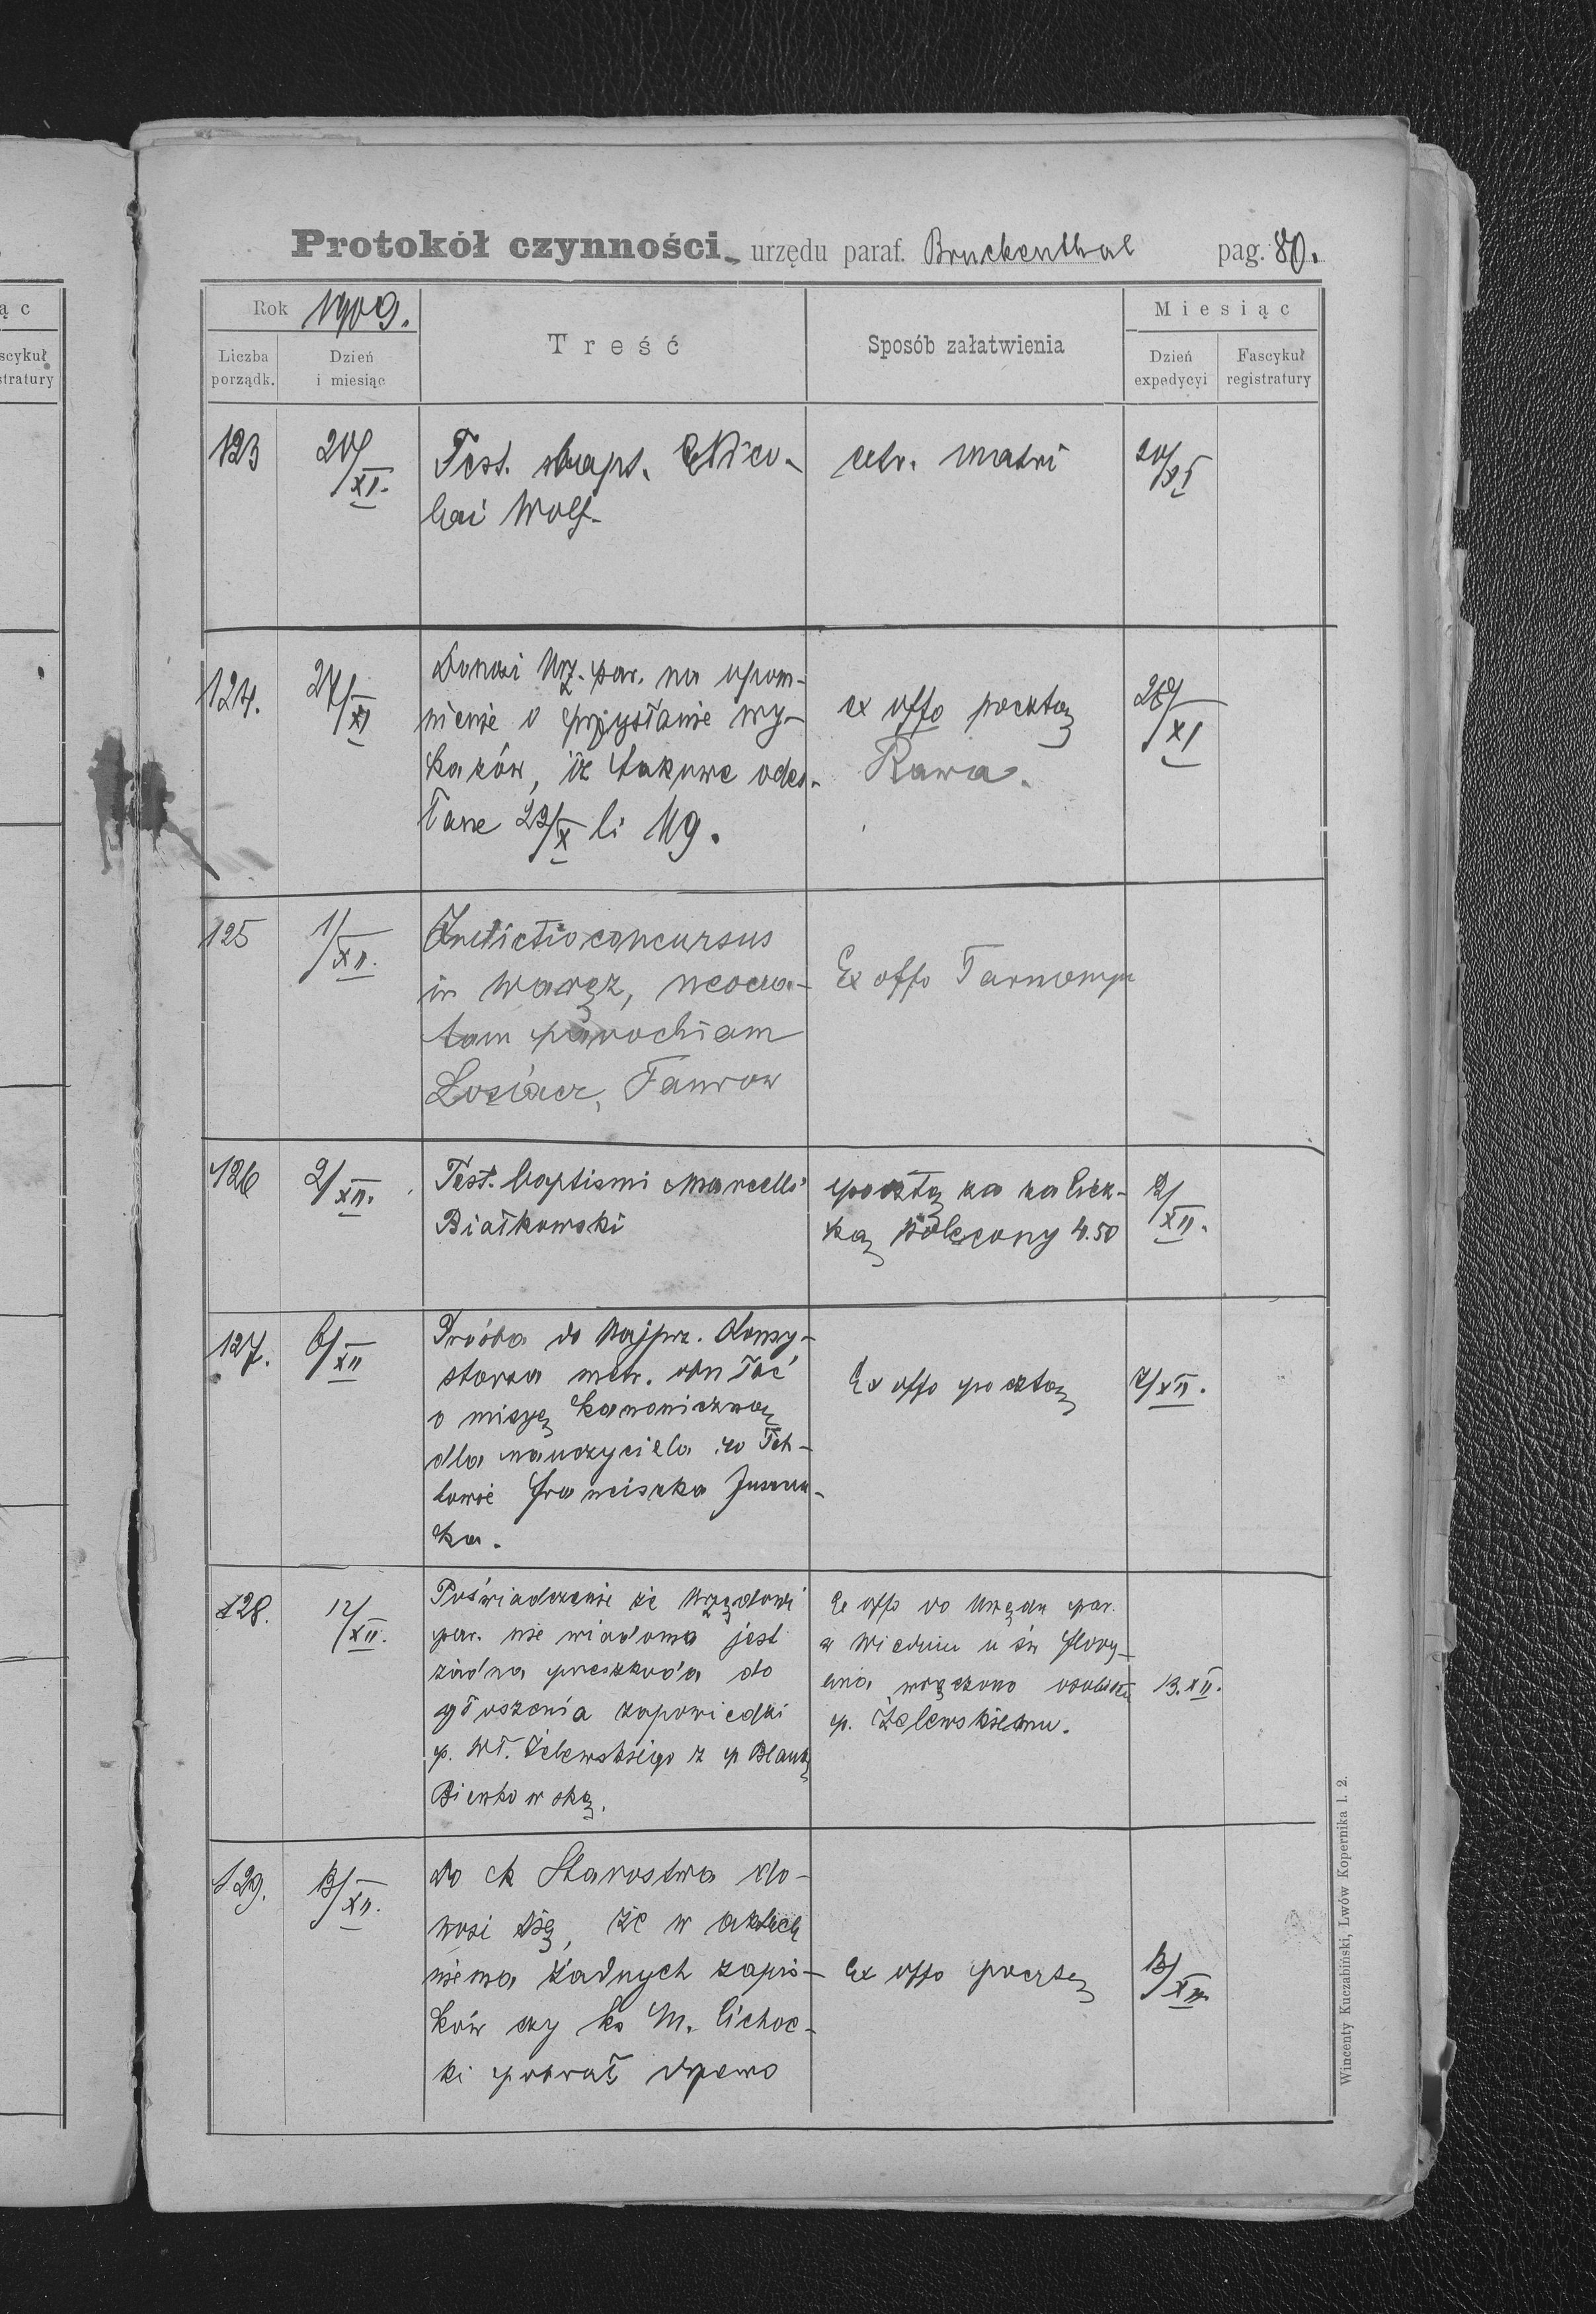 Protokół czynności urzędu paraf. Bruckenthal pag. 80.
Rok 1909.
Treść
Sposób załatwienia
Miesiąc
Liczba porządk.
Dzień i miesiąc
Dzień expedycyi
Fascykuł registratury
123
20/XI.
Test. bapt. Nico-
lai Wolf.
extr. matri
20/XI
124.
27/XI
Donosi Urz. par. na upom-
nienie o przysłanie wy-
kazów, iż takowe odes-
łane 29/X li 119.
ex offo pocztą
Rawa.
28/XI
125
1/XII.
Indictio concursus
in Waręż, neoerea-
tam parochiam
Łosiacz, Taurow
Ex offo Tarnopol
126
2/XII.
Test. baptismi Marcelli
Białkowski
pocztą za zalicz-
ką polecony 4.50
2/XII.
127.
6/XII
Prośba do Najprz. Konsy-
storza metr. ob. łać
o misyę kanoniczną
dla nauczyciela w Teh-
lowie Franciszka
ka.
Ex offo pocztą
7/XII.
128.
12/XII.
Poświadczenie że Urzędowi
par. nie wiadoma jest
żadna przeszkoda do
głoszenia zapowiedzi
p. Wł. Żelewskiego z p Blanką
Bienkowską.
Ex offo do Urzędu par.
w Wiedniu u św Flory-
ana wręczono osobiście
p. Żelewskiemu.
13.XII.
129.
13/XII.
Do ck Starostwa do-
nosi się, że w aktach
niema żadnych zapis-
ków czy ks M. Cichoc-
ki pobrał drzewo
Ex offo pocztą
13/XII
Wincenty Kuczabiński, Lwów Kopernika l. 2.
ąc
scykuł
stratury